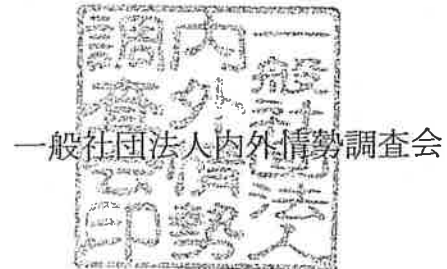 一般社団法人内外情勢調査会
一般社団法人
内外情勢
調査会印